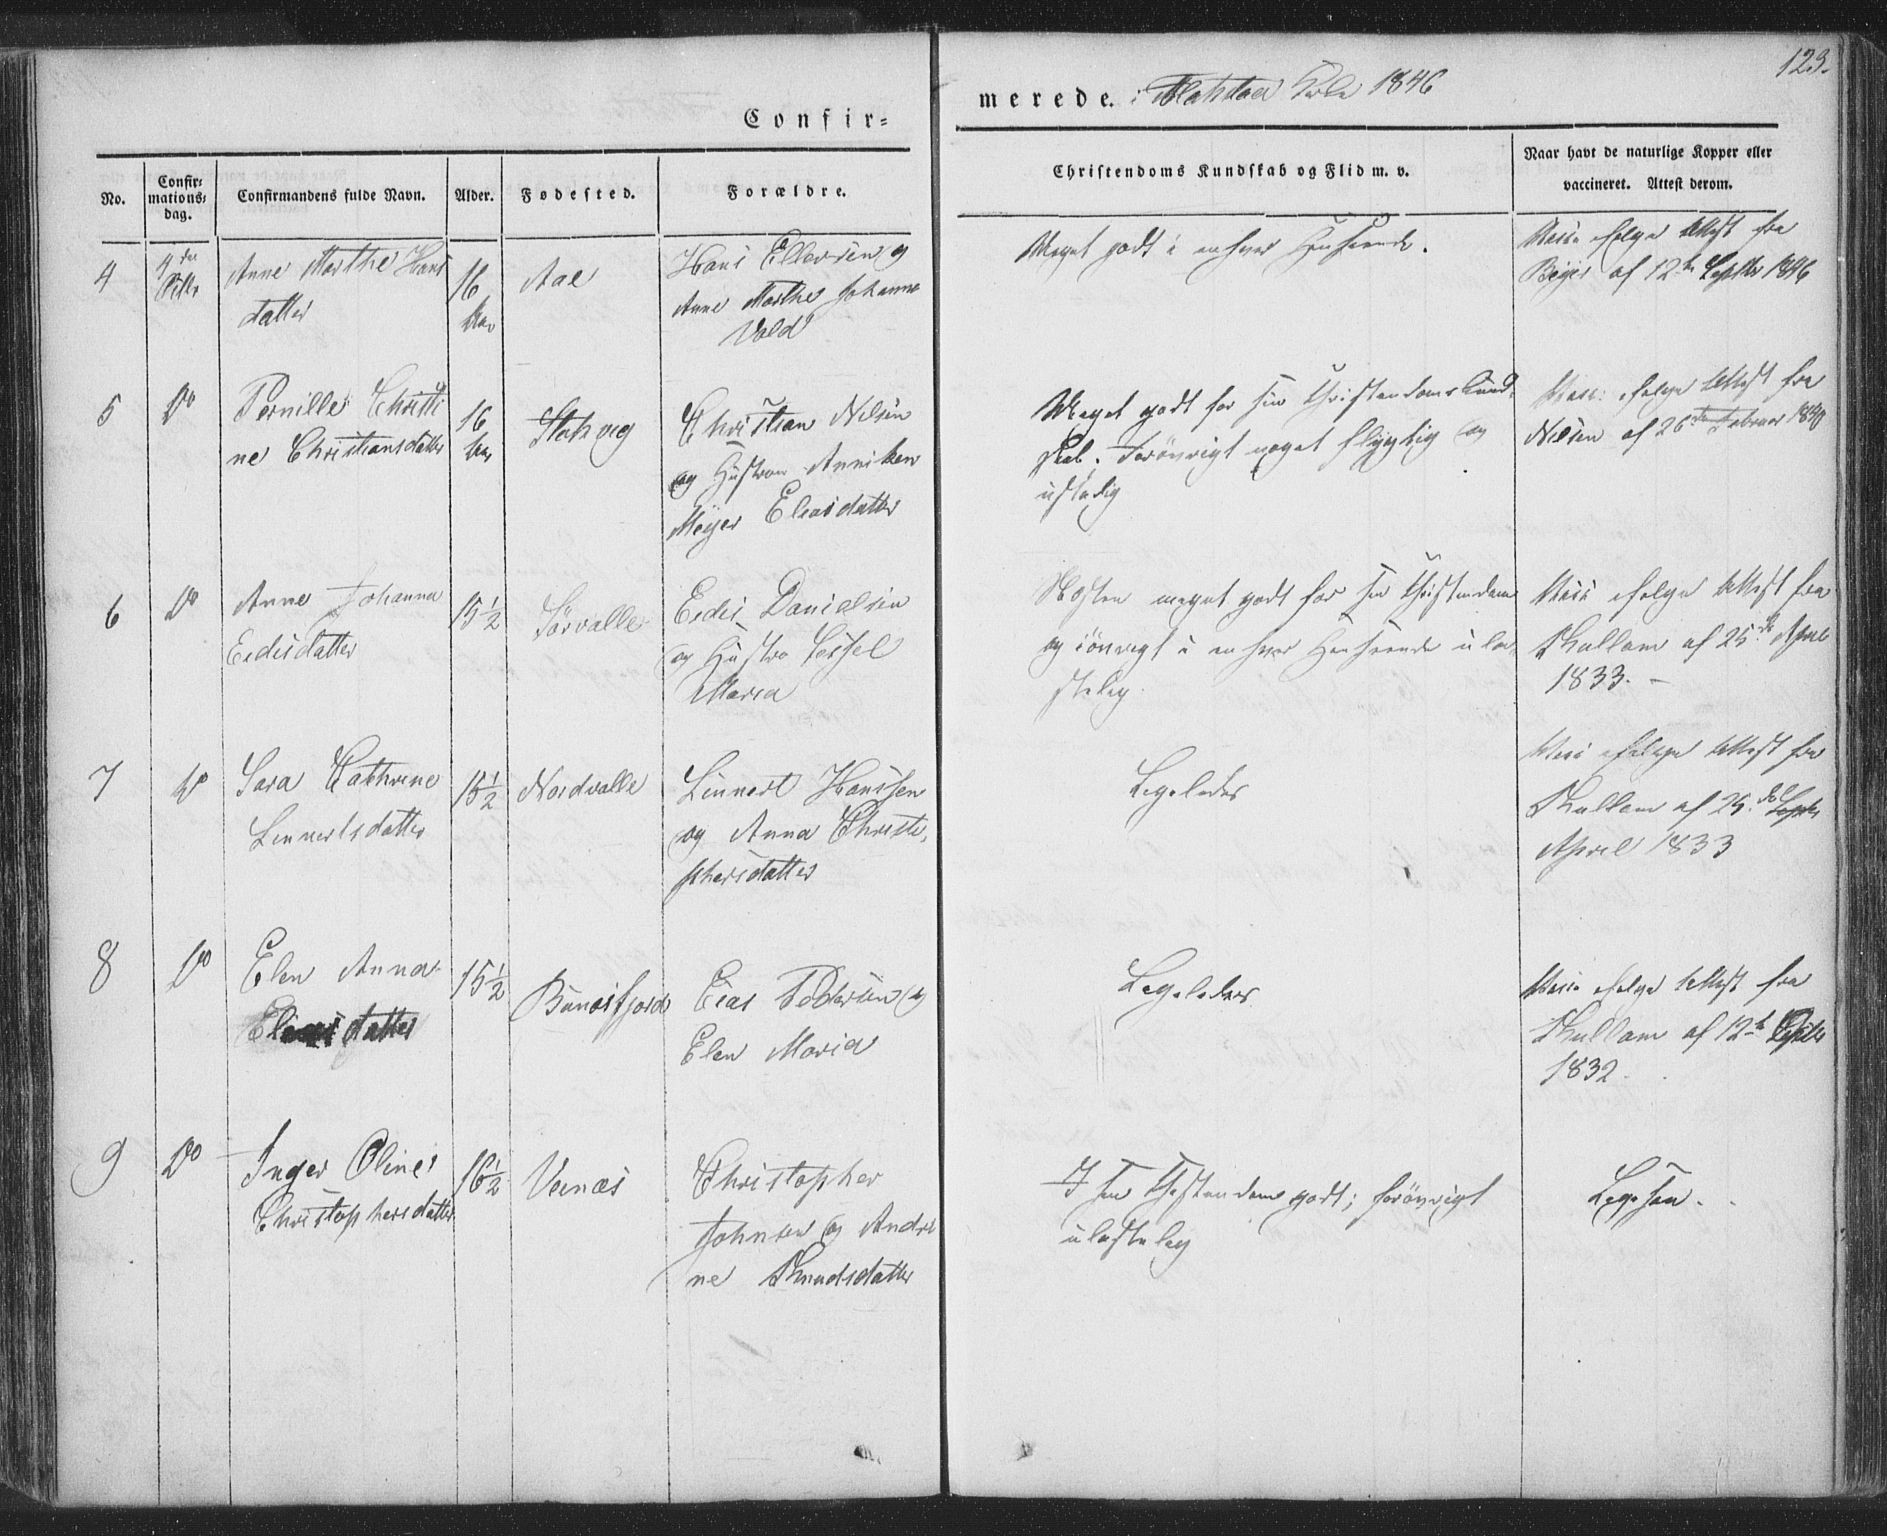 123.
Confir=
merede. i 1846
No.
Confir=
mations=
dag.
Confirmandens fulde Navn.
Alder.
Fødested.
Forældre.
Christendoms Kundskab og Flid m. v.
Naar havt de naturlige Kopper eller
vaccineret. Attest derom.
4
Anne Marthe Hans
datter
16
Aar
Aae
Hans Ellevsen og
Anne Marthe Johanne
Vold
Meget godt i enhver Henseende.
Vacc. ifølge Attest fra
Beyer af 12te Septbr 1846
5
Do
Pernille Christi
ne Christiansdatter
16
Aar
Stokvig
Christian Nilsen
og Hustroe Anniken
Meyer Eliasdatter
Meget godt for sin Christendoms Kund=
skab. Forövrigt noget flygtig og
Vacc. ifølge Attest fra
Nilsen af 26de Februar 1840
6
Do
Anne Johanna
Eedisdatter
15½
Sörvalle
Eedis Danielsen
og Hustro Sessel
Maria
Næsten meget godt for sin Christendom
og iövrigt i enhver Henseende ula=
stelig.
Vacc. ifølge Attest fra
Kullam af 25de April
1833. –
7
Do
Sara Cathrine
Linnertsdatter
15½
Nordvalle
Linnert Hanssen
og Anna Christo=
phersdatter
Ligeledes
Vacc. ifølge Attest fra
Kullam af 25de
April 1833
8
Do
Elen Anna
datter
15½
Bunesfjord
Eias Pedersen og
Elen Maria
Ligeledes
Vacc. ifølge Attest fra
Kullam af 12te Septbr
1832.
9
Do
Inger Oline
Christophersdatter
16½
Veenæs
Christopher
Johnsen og Andri
ne Knudsdatter
I sin Christendom godt; forövrigt
ulastelig
Ligesaa.